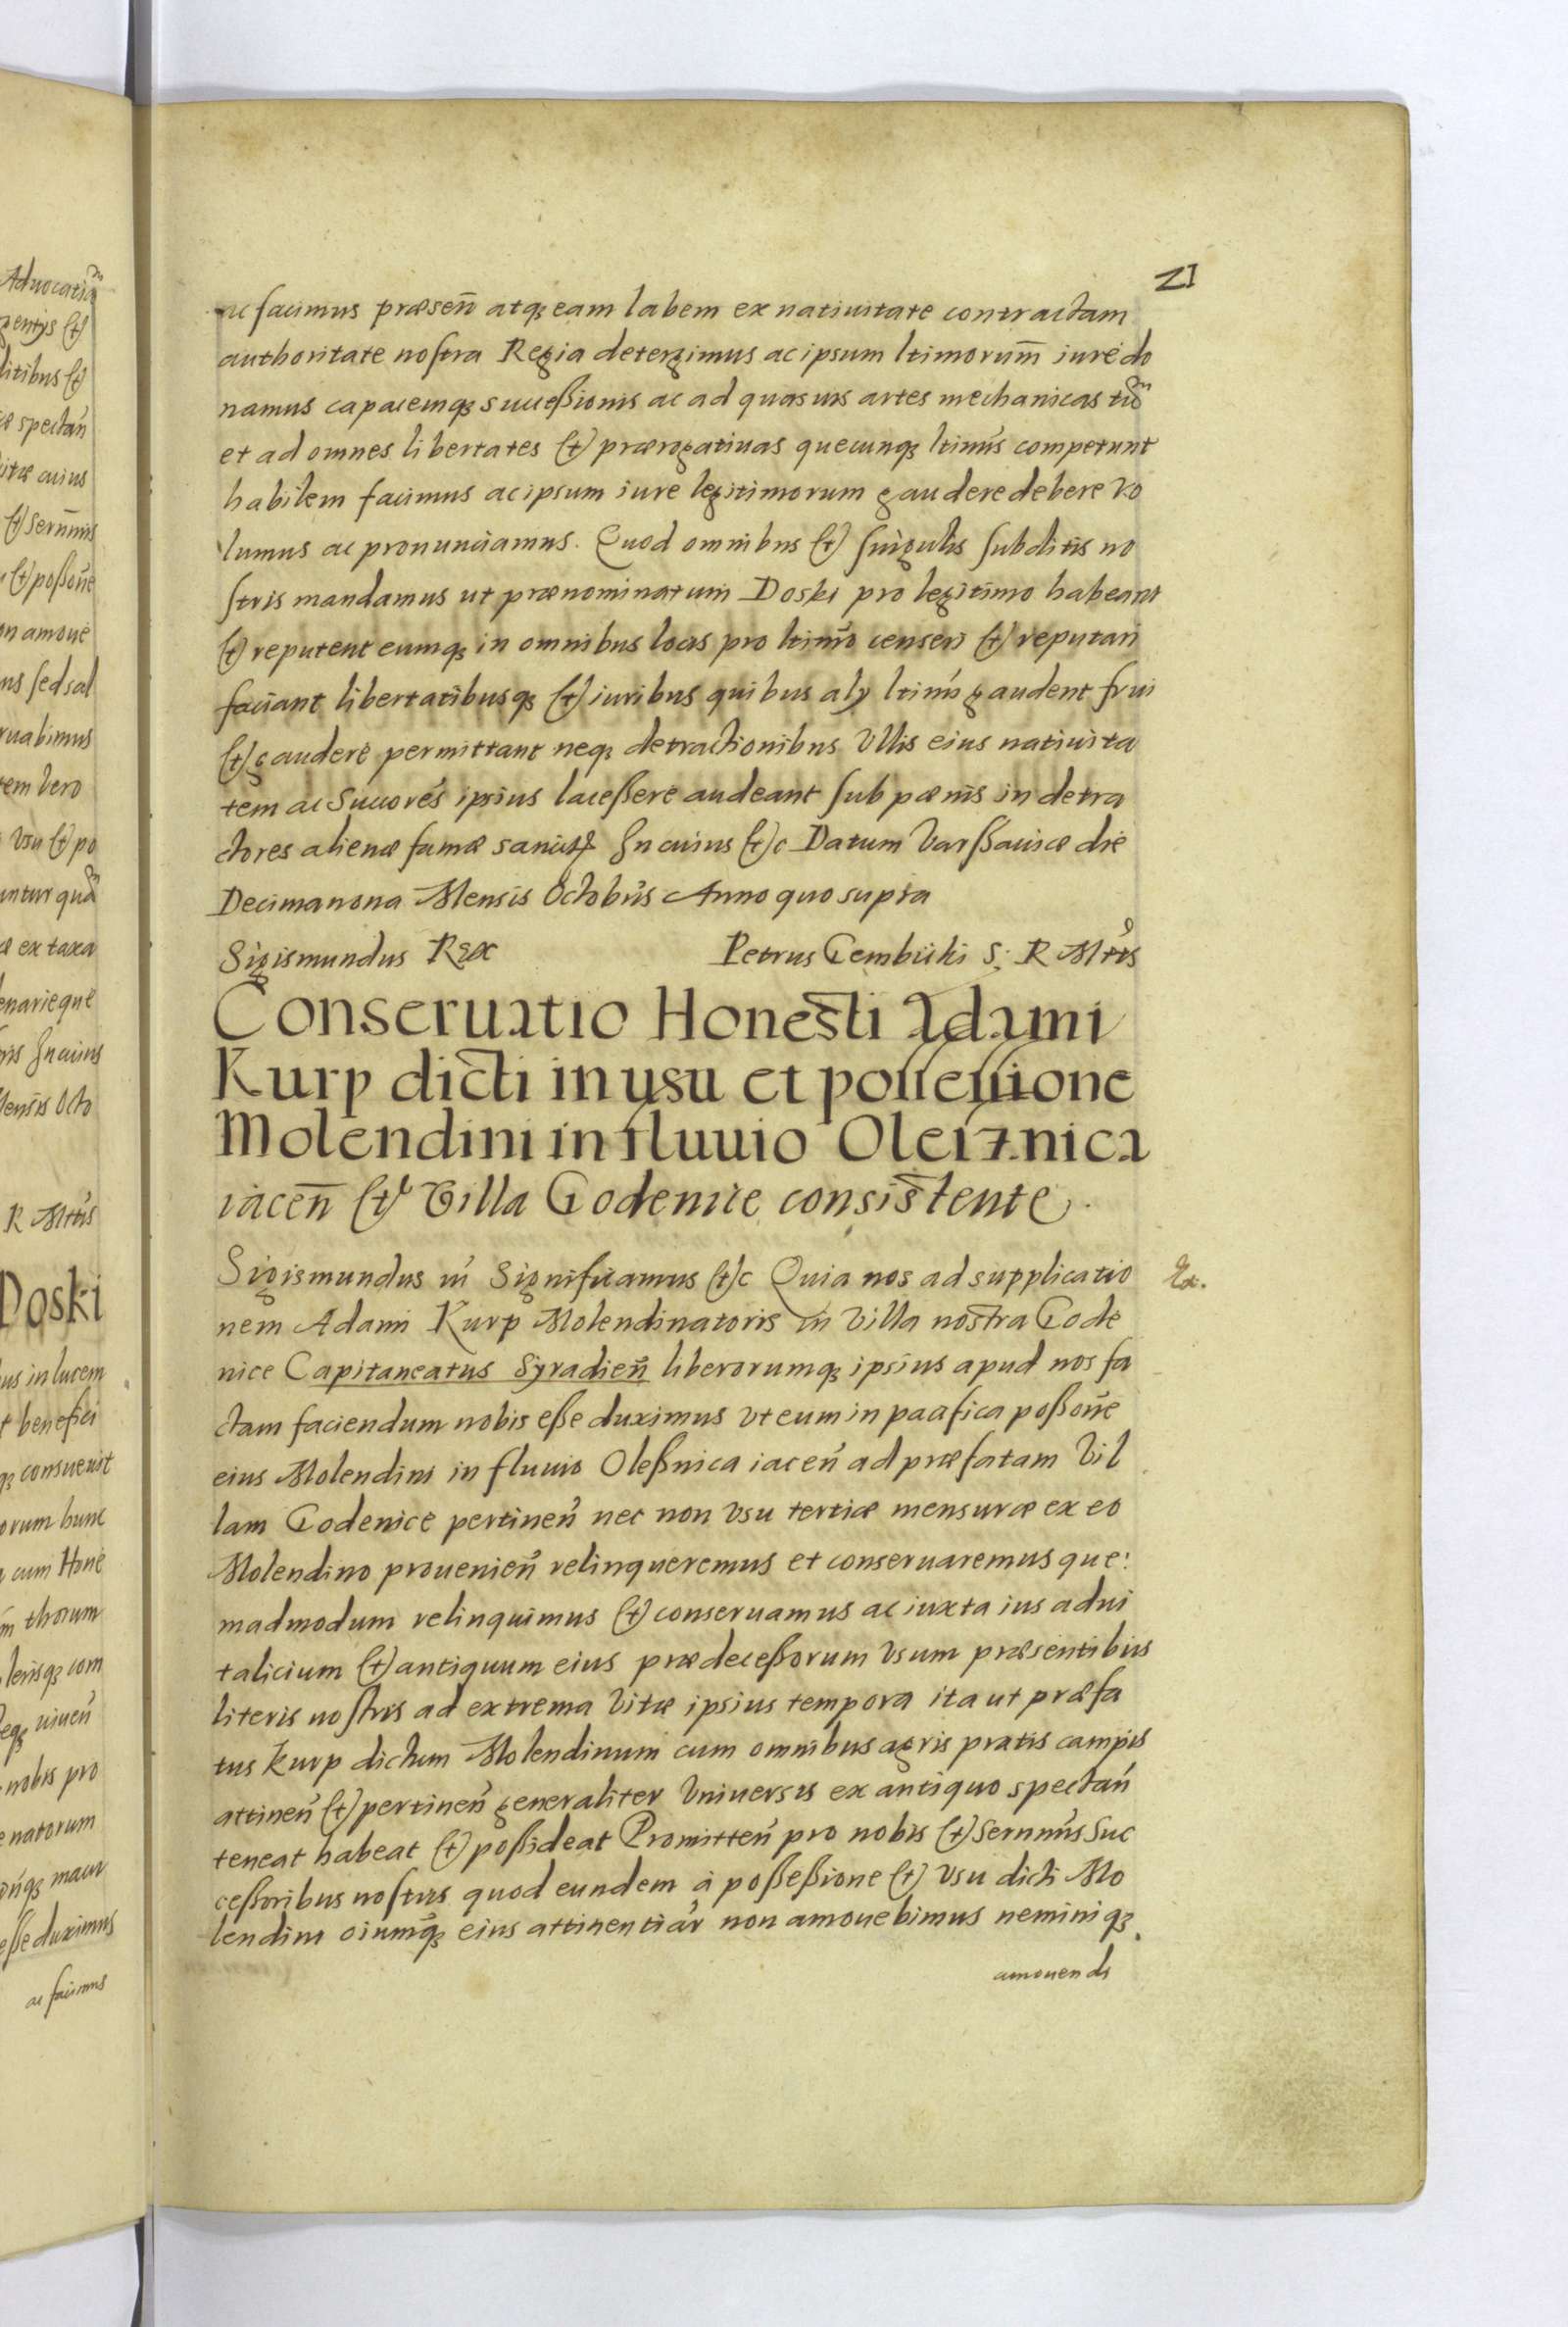 21
ac facimus præsen̄ atq; eam labem ex natiuitate contractam
authoritate nostra Regia detergimus ac ipsum ltimorum̄ iure do
namus capacemq; successionis ac ad quasuis artes mechanicas
et ad omnes libertates et prærogatiuas quecunq; ltimis competunt
habilem facimus ac ipsum iure legitimorum gaudere debere vo
lumus ac pronunciamus. Quod omnibus et singulis subditis no
stris mandamus ut prænominatum Doski pro legitimo habeant
et reputent eumq; in omnibus locis pro ltimo censeri et reputari
faciant libertatibusq; et iuribus quibus aly ltimi gaudent frui
et gaudere permittant neq; detractionibus Vllis eius natiuita
tem ac Succores ipsius lacessere audeant sub pænis in detra
ctores alienæ famæ In cuius etc Datum Varssauiæ die
Decimanona Mensis Octobris Anno quo supra
Sigismundus Rex Petrus Gembicki S. R Mttis
Conseruatio Honesti Adami
Kurp dicti in usu et possessione
Molendini in fluuio Oleiznica
iacen̄ et Villa Godenice consistente.
Sigismundus Significamus etc Quia nos ad supplicatio
nem Adami Kurp Molendinatoris in Villa nostra Gode
nice Capitaneatus Syradien̄ liberorumq; ipsius apud nos fa
ctam faciendum nobis esse duximus vt eum in paafica possone
eius Molendini in fluuio Olessnica iacen̄ ad præfatam Vil
lam Godenice pertinen̄ nec non vsu tertiæ mensuræ ex eo
Molendino prouenien̄ relinqueremus et conseruaremus que:
madmodum relinquimus et conseruamus ac iuxta ius adui
talicium et antiquum eius prædecessorum vsum præsentibus
literis nostris ad extrema vitæ ipsius tempora ita ut præfa
tus Kurp dictum Molendinum cum omnibus agris pratis campis
attinen̄ et pertinen̄ generaliter Vniuersis ex antiquo spectan̄
teneat habeat et possideat Promitten̄ pro nobis et Sernmis Suc
cessoribus nostris quod eundem à possessione et vsu dicti Mo
lendini oiumq; eius attinentiar non amouebimus neminiq;
amouendi